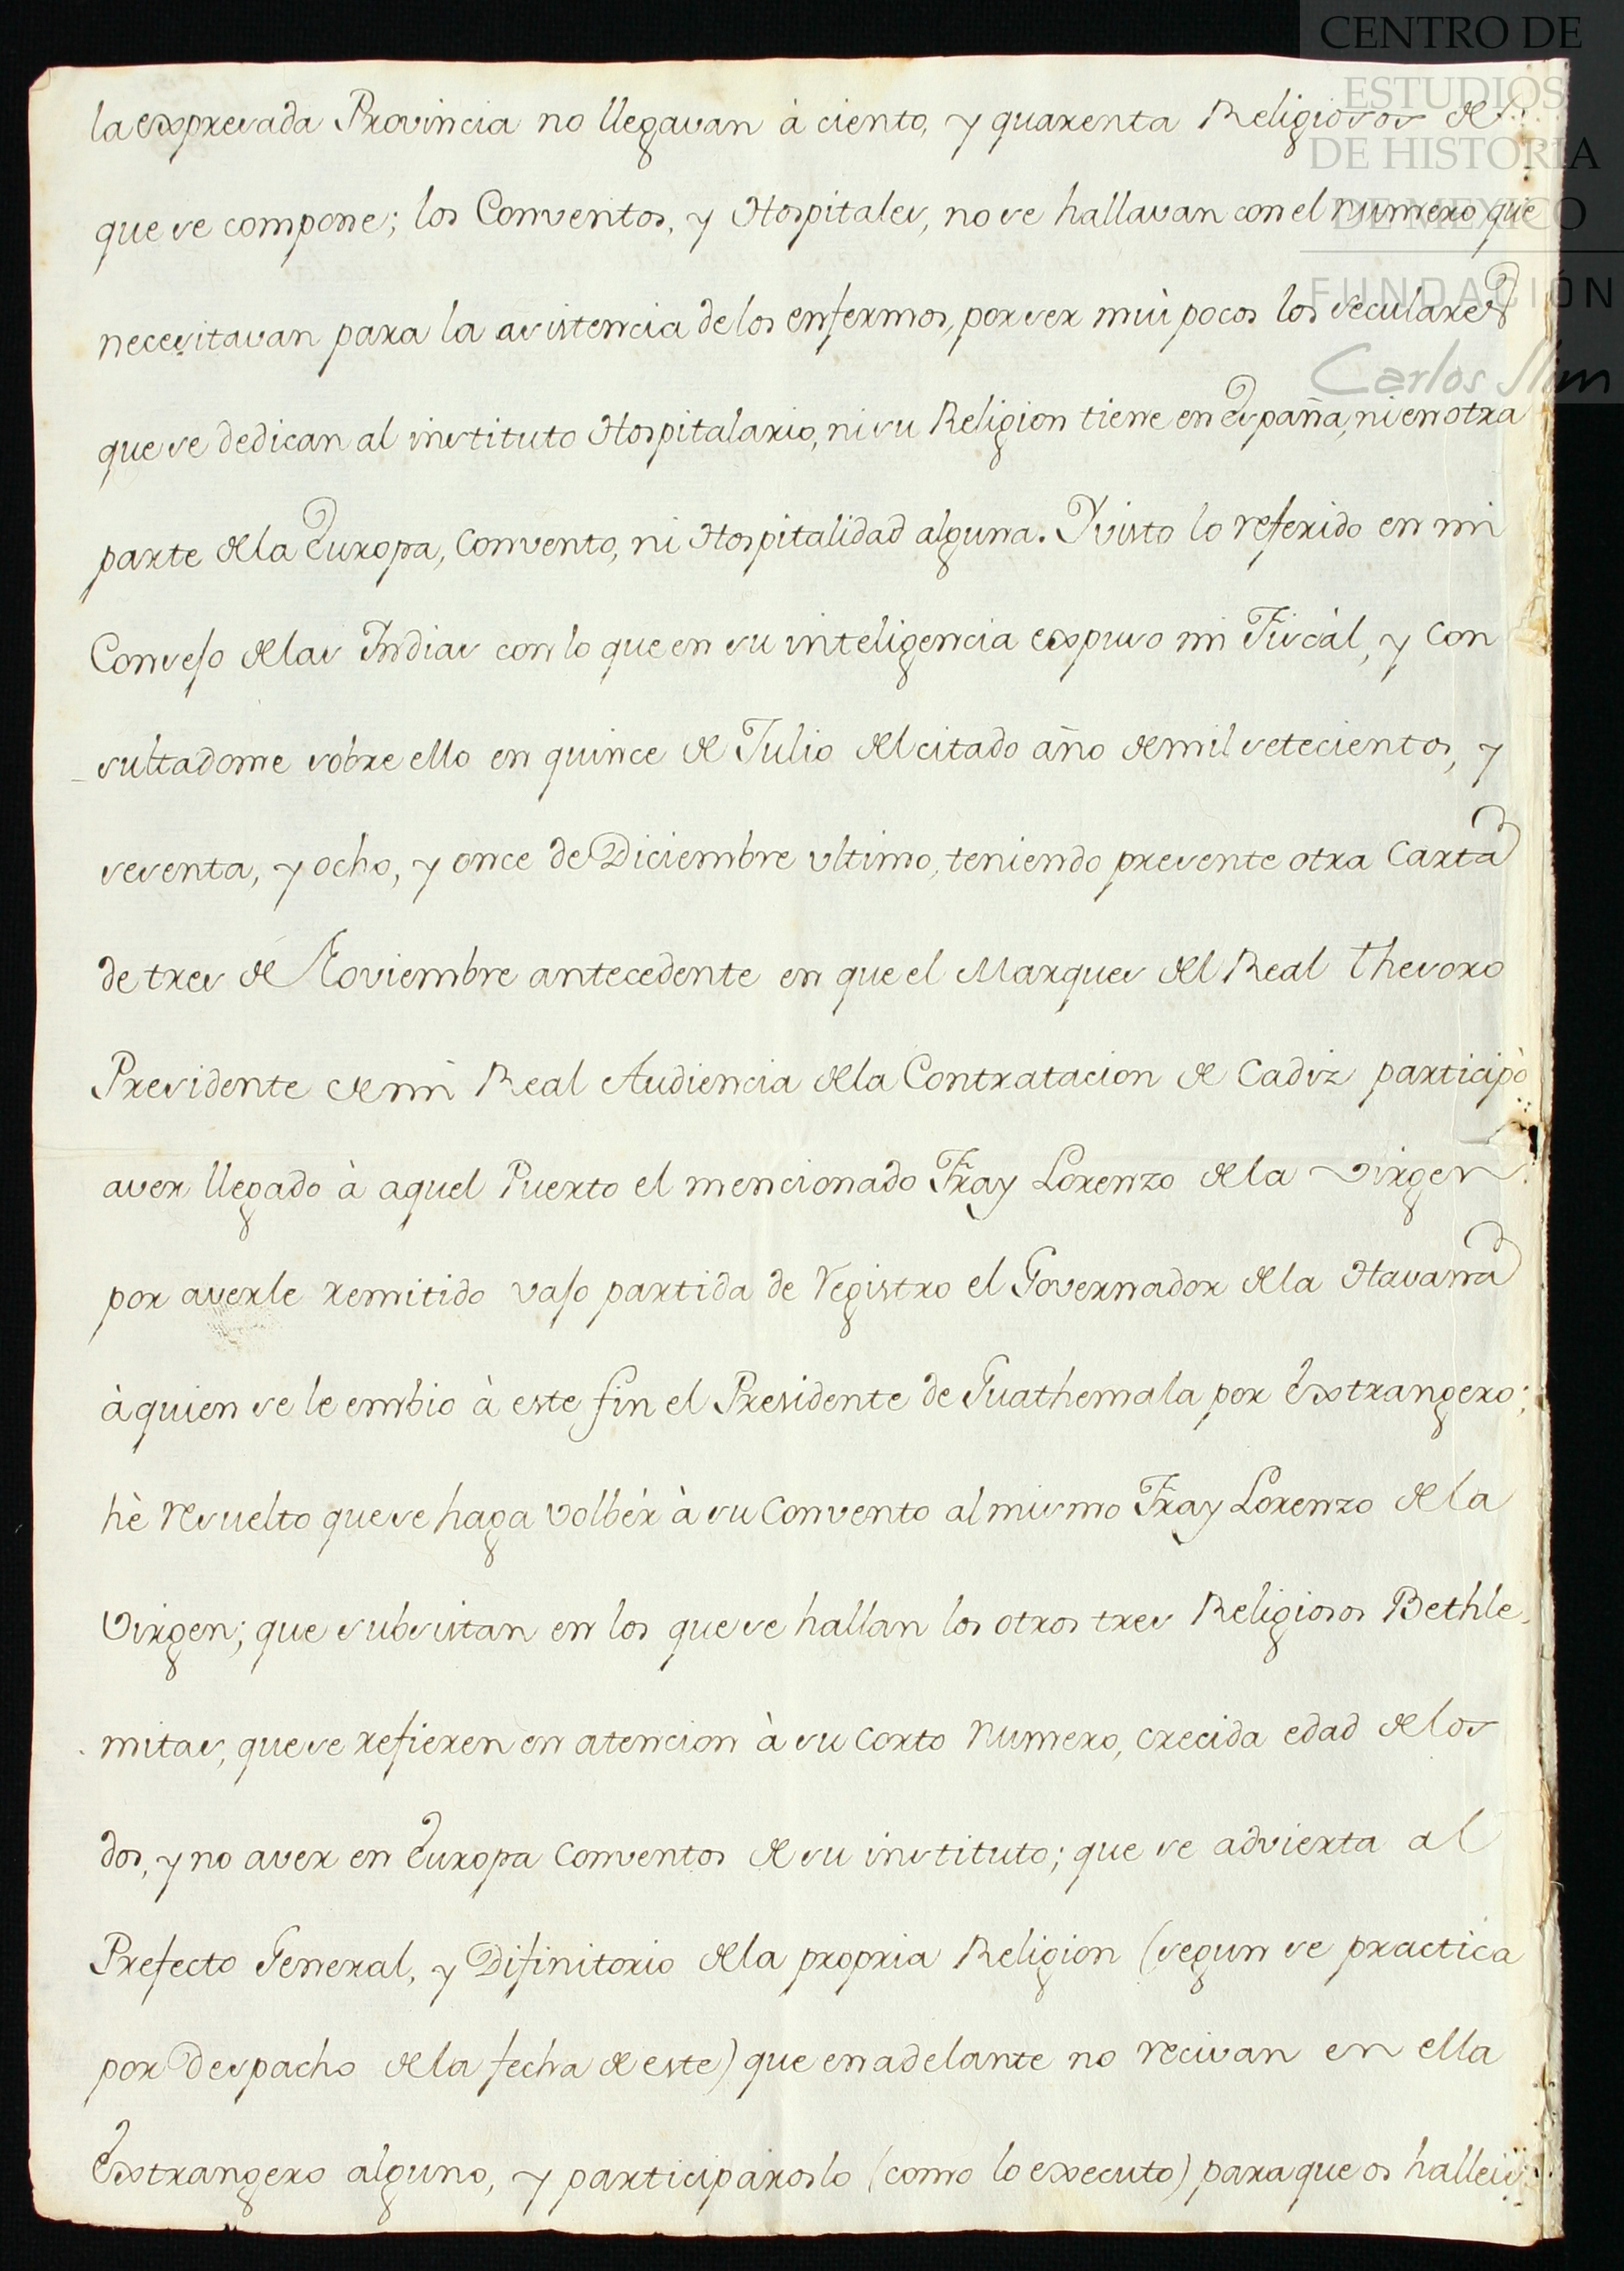 CENTRO DE
ESTUDIOS
DE HISTORIA
DE MEXICO
FUNDACIÓN
Carlos Slim
la expresada Provincia no llegavan à ciento, y quarenta Religiosos de
que se compone; los Conventos, y Hospitales, no se hallavan con el numero que
necesitavan para la asistencia de los enfermos, por ser mui pocos los seculares
que se dedican al instituto Hospitalario, ni su Religion tiene en España, ni en otra
parte de la Europa, Convento, ni Hospitalidad alguna. Y visto lo referido en mi
Consejo de las Indias con lo que en su inteligencia expuso mi Fiscàl, y con
sultadome sobre ello en quince de Julio del citado año de mil setecientos, y
sesenta, y ocho, y once de Diciembre ultimo, teniendo presente otra Carta
de tres de Noviembre antecedente en que el Marques del Real Thesoro
Presidente de mi Real Audiencia de la Contratacion de Cadiz participò
aver llegado à aquel Puerto el mencionado Fray Lorenzo de la Virgen
por averle remitido vajo partida de registro el Governador de la Havana
à quien se le embio à este fin el Presidente de Guathemala por Extrangero;
hè resuelto que se haga volbér à su Convento al mismo Fray Lorenzo de la
Virgen; que subsistan en los que se hallan los otros tres Religiosos Bethle
mitas, que se refieren en atencion à su corto numero, crecida edad de los
dos, y no aver en Europa Conventos de su instituto; que se advierta al
Prefecto General, y Difinitorio de la propria Religion (segun se practica
por Despacho de la fecha de este) que en adelante no recivan en ella
Extrangero alguno, y participaroslo (como lo executo) para que os halleis